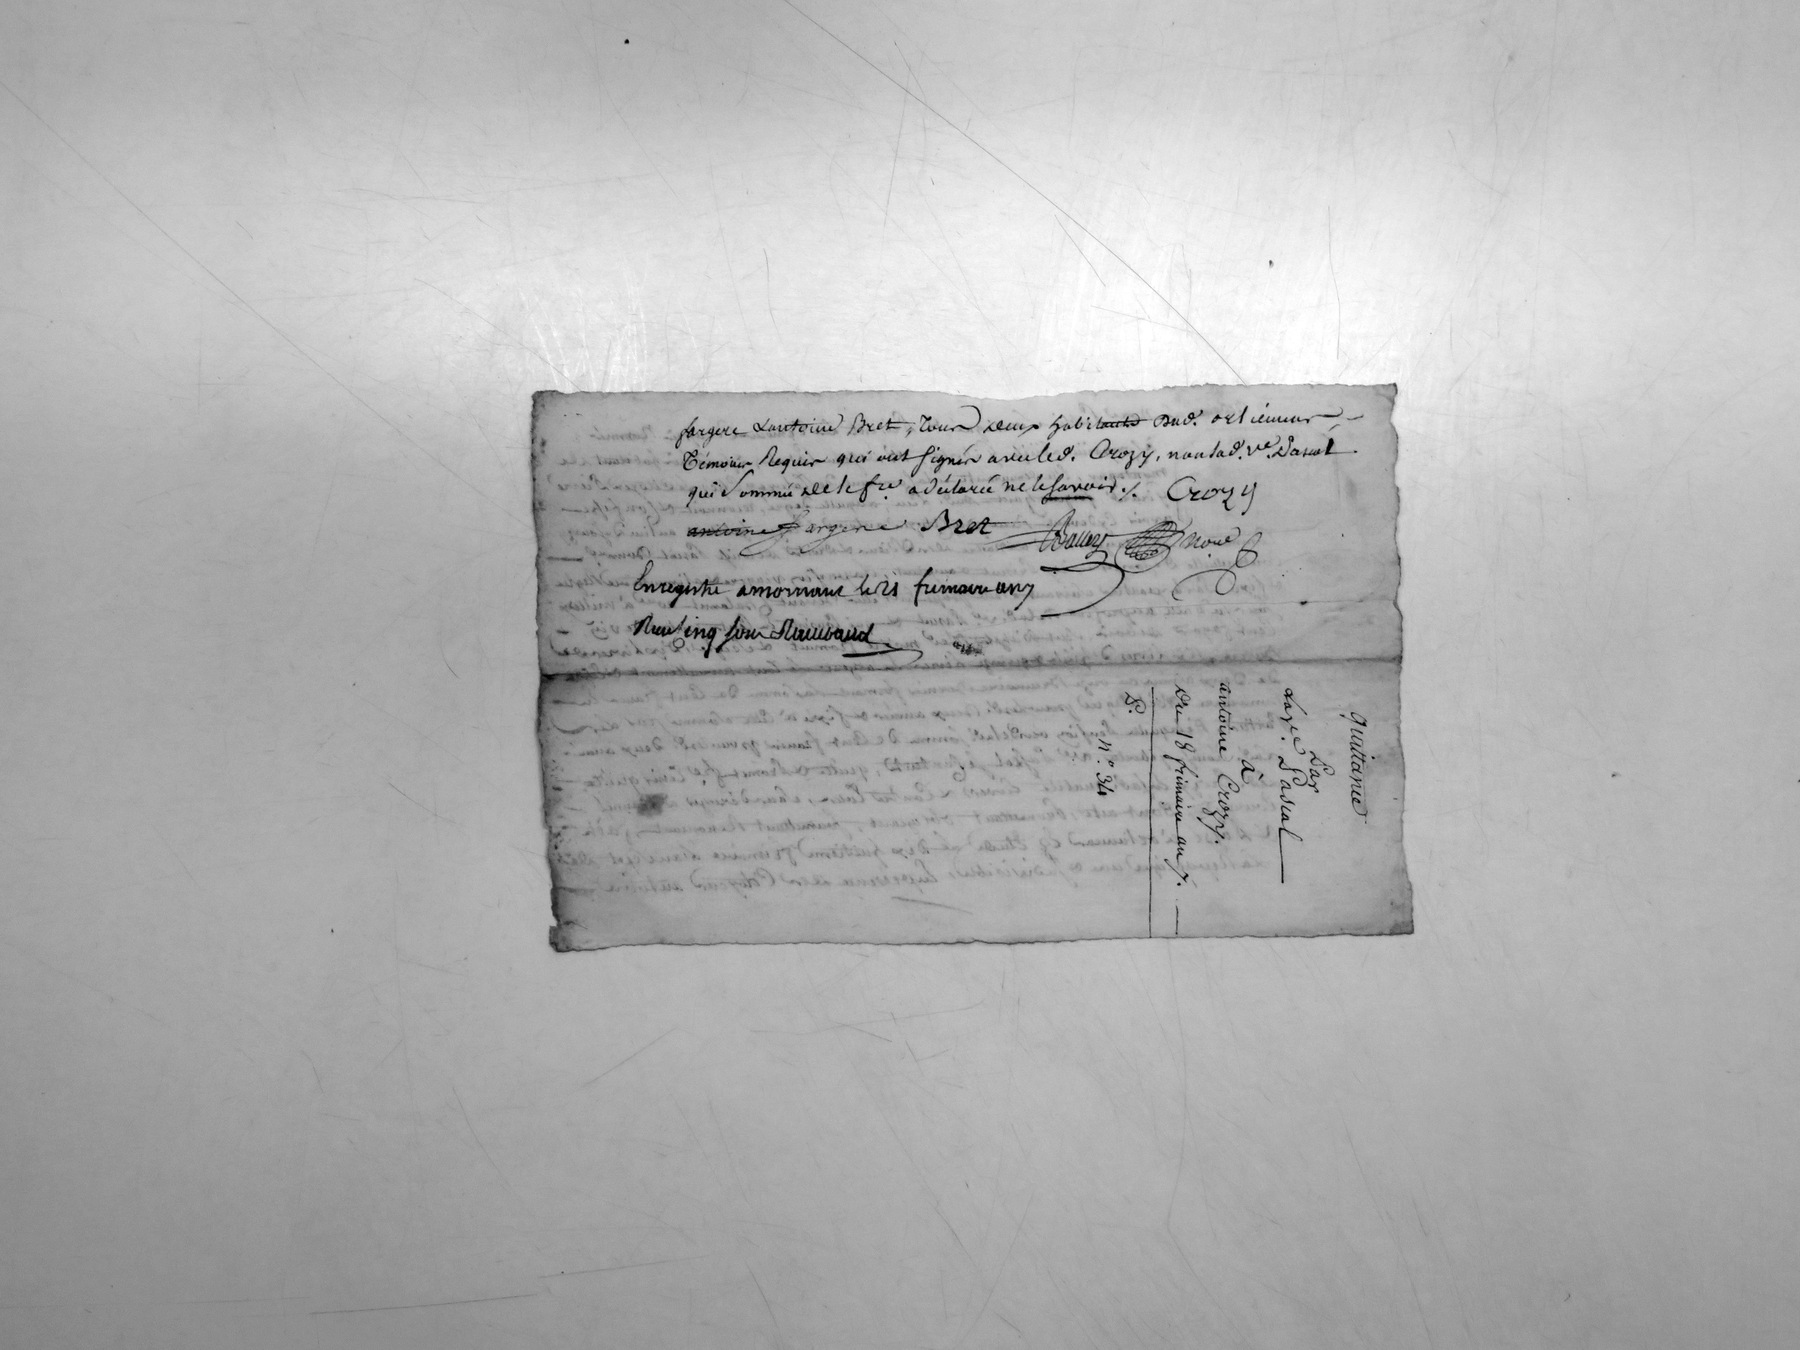 fargere & antoine Bret, Tous deux habitants dud. orliennas
Témoins Requis qui ont signés avec led. Crozy, non lad. ve. Pascal
qui sommée de le fre. a déclaré ne le savoir ./. Crozy
antoine fargere Bret nore
Enregistré a mornant le 21 frimaire an 7
Reçu cinq sous
Quittance
Par
La ve. Pascal
à
antoine Crozy.
Du 18 frimaire an 7.
n.° 34
P.